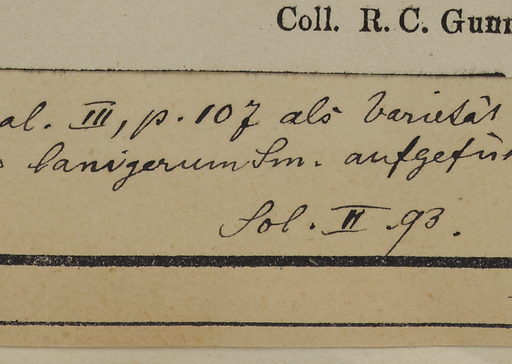 Coll. R. C. Gunn
al. III, p. 107 als Varietät
lanigerum Sm. aufgefüh
Sol. II. 93.